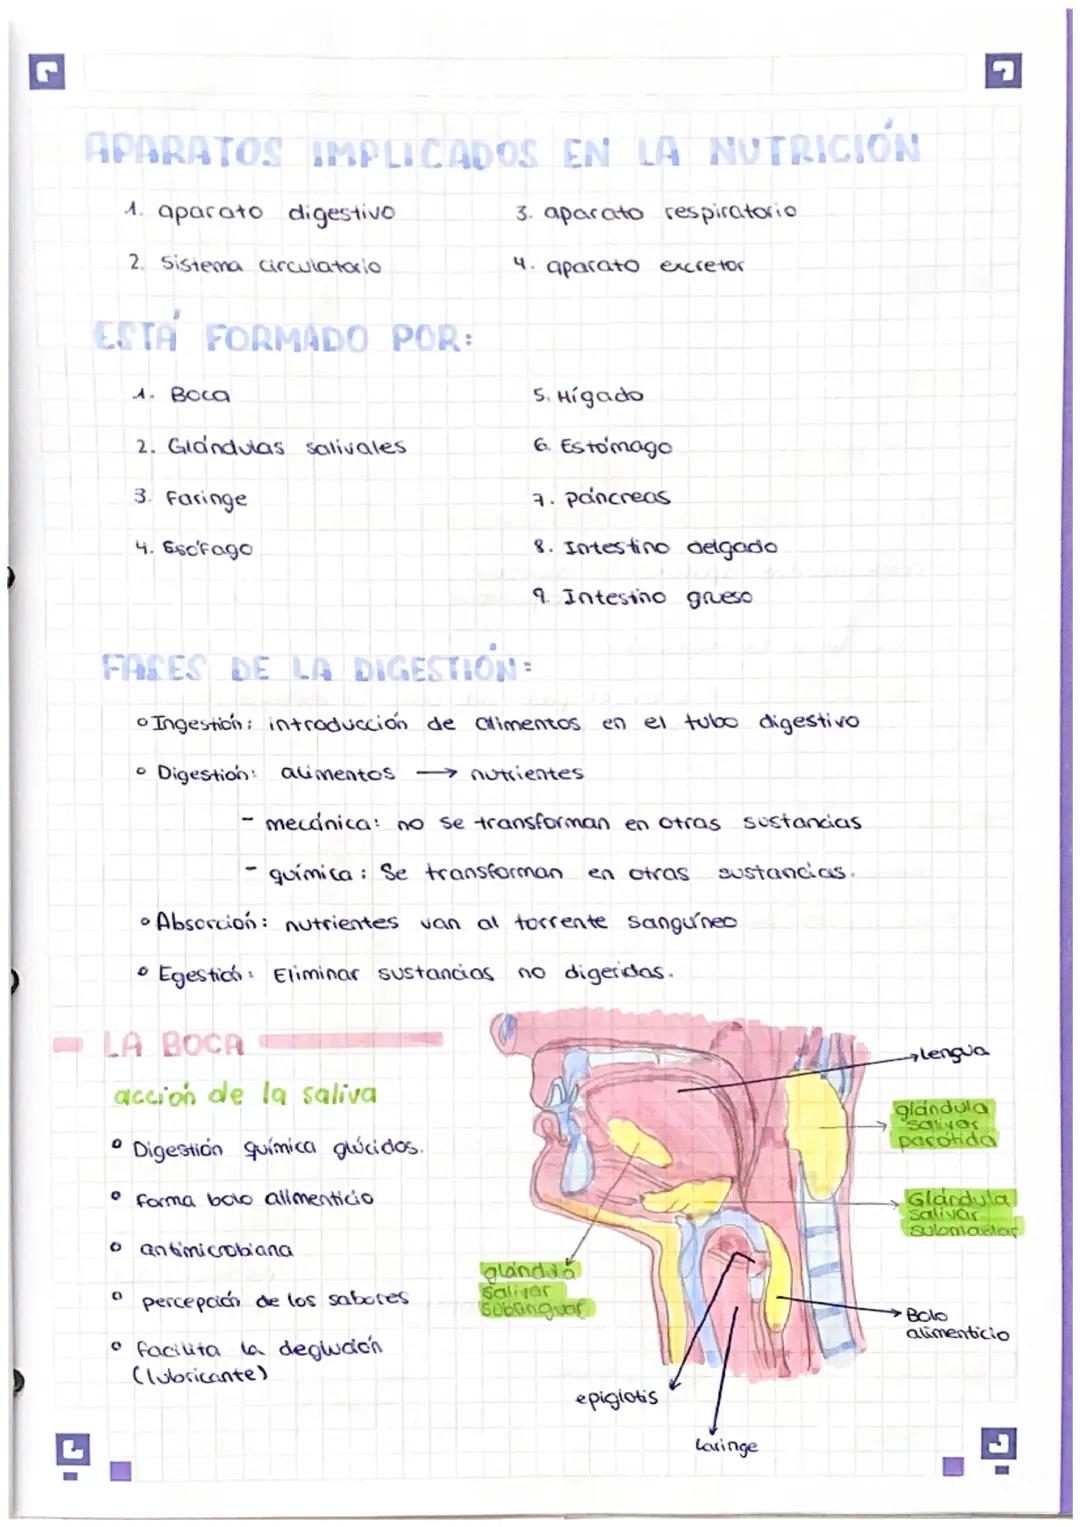 APARATOS IMPLICADOS EN LA NUTRICIÓN
1. aparato digestivo
2. Sistema circulatorio
3. aparato respiratorio
4. aparato excretor
ESTÁ FORMADO POR:
1. Boca
2. Glándulas salivales
3. Faringe
4. Esófago
5. Hígado
6. Estómago
7. páncreas
8. Intestino delgado
9. Intestino grueso
FASES DE LA DIGESTIÓN:
° Ingestión: introducción de alimentos en el tubo digestivo
° Digestión: alimentos → nutrientes
- mecánica: no se transforman en otras sustancias
- química: Se transforman en otras sustancias.
° Absorción: nutrientes van al torrente sanguíneo
° Egestión: Eliminar sustancias no digeridas.
LA BOCA
acción de la saliva
° Digestión química glúcidos.
° forma bolo alimenticio
° antimicrobiana
° percepción de los sabores
° facilita la deglución
(lubricante)
lengua
glándula
salivar
parótida
Glándula
salivar
submaxilar
glándula
salivar
sublingual
Bolo
alimenticio
epiglotis
laringe